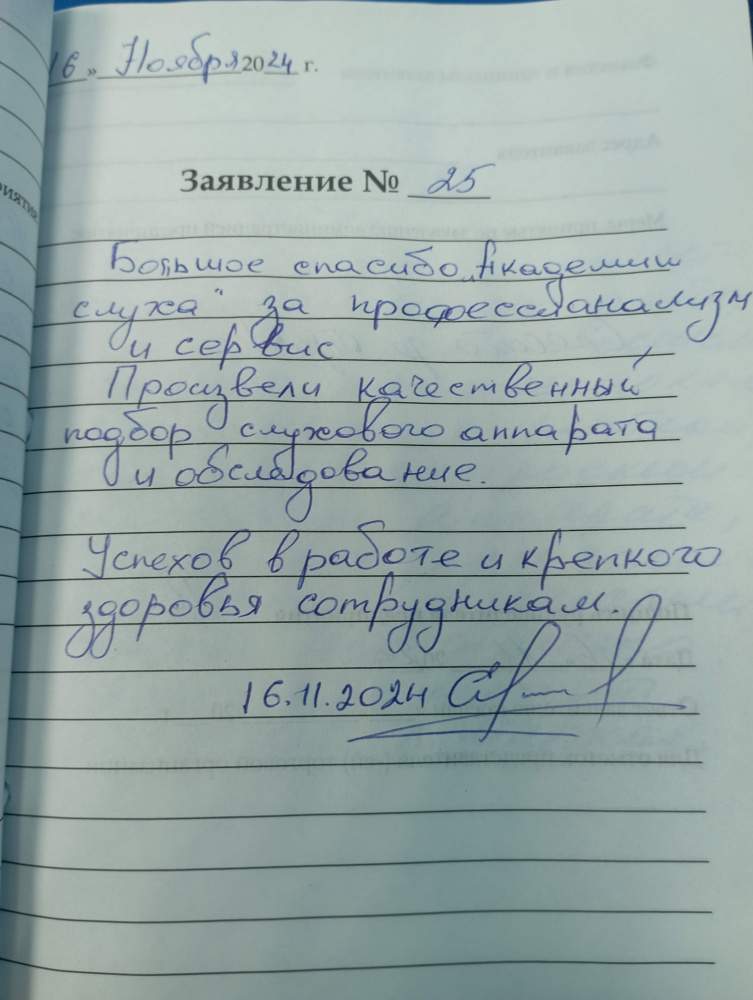 16 » Ноября 2024 г.
Заявление № 25
Большое спасибо „Академии
слуха" за профессианализм
и сервис
Произвели качественный
подбор слухового аппарата
и обследование.
Успехов в работе и крепкого
здоровья сотрудникам.
16.11.2024